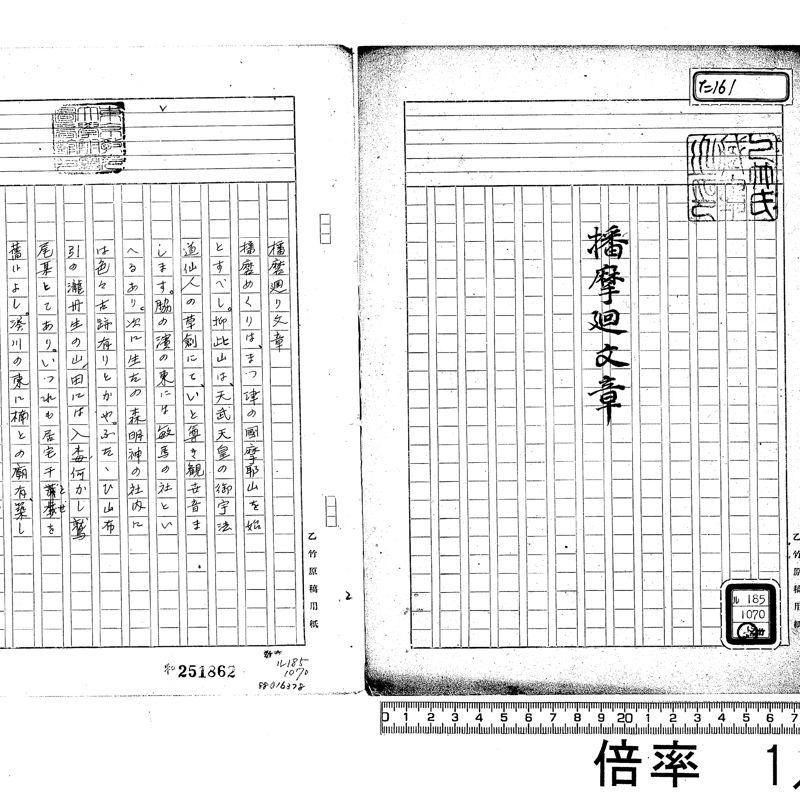 た161
播摩廻文章
ル 185
1070
乙竹原稿用紙
播磨廻り文章
播磨めくりは、まつ津の國摩耶山を始
とすべし。抑此山は、天武天皇の御宇法
道仙人の草創にて、いと尊き観世音ま
します。脇の濱の東には敏馬の社とい
へるあり。次に生田の森明神の社内に
は色々古跡有りとかや。ふたゝび山布
引の瀧丹生の山田には入
何かし鷲
尾某とてあり。いつれも居宅千
を
とせ
蕾によし。湊川の東に楠との廟有、築し
乙竹原稿用紙
2
和251862
ル185
1070
88016378
0 1 2 3 4 5 6 7 8 9 20 1 2 3 4 5 6 7
倍率 1